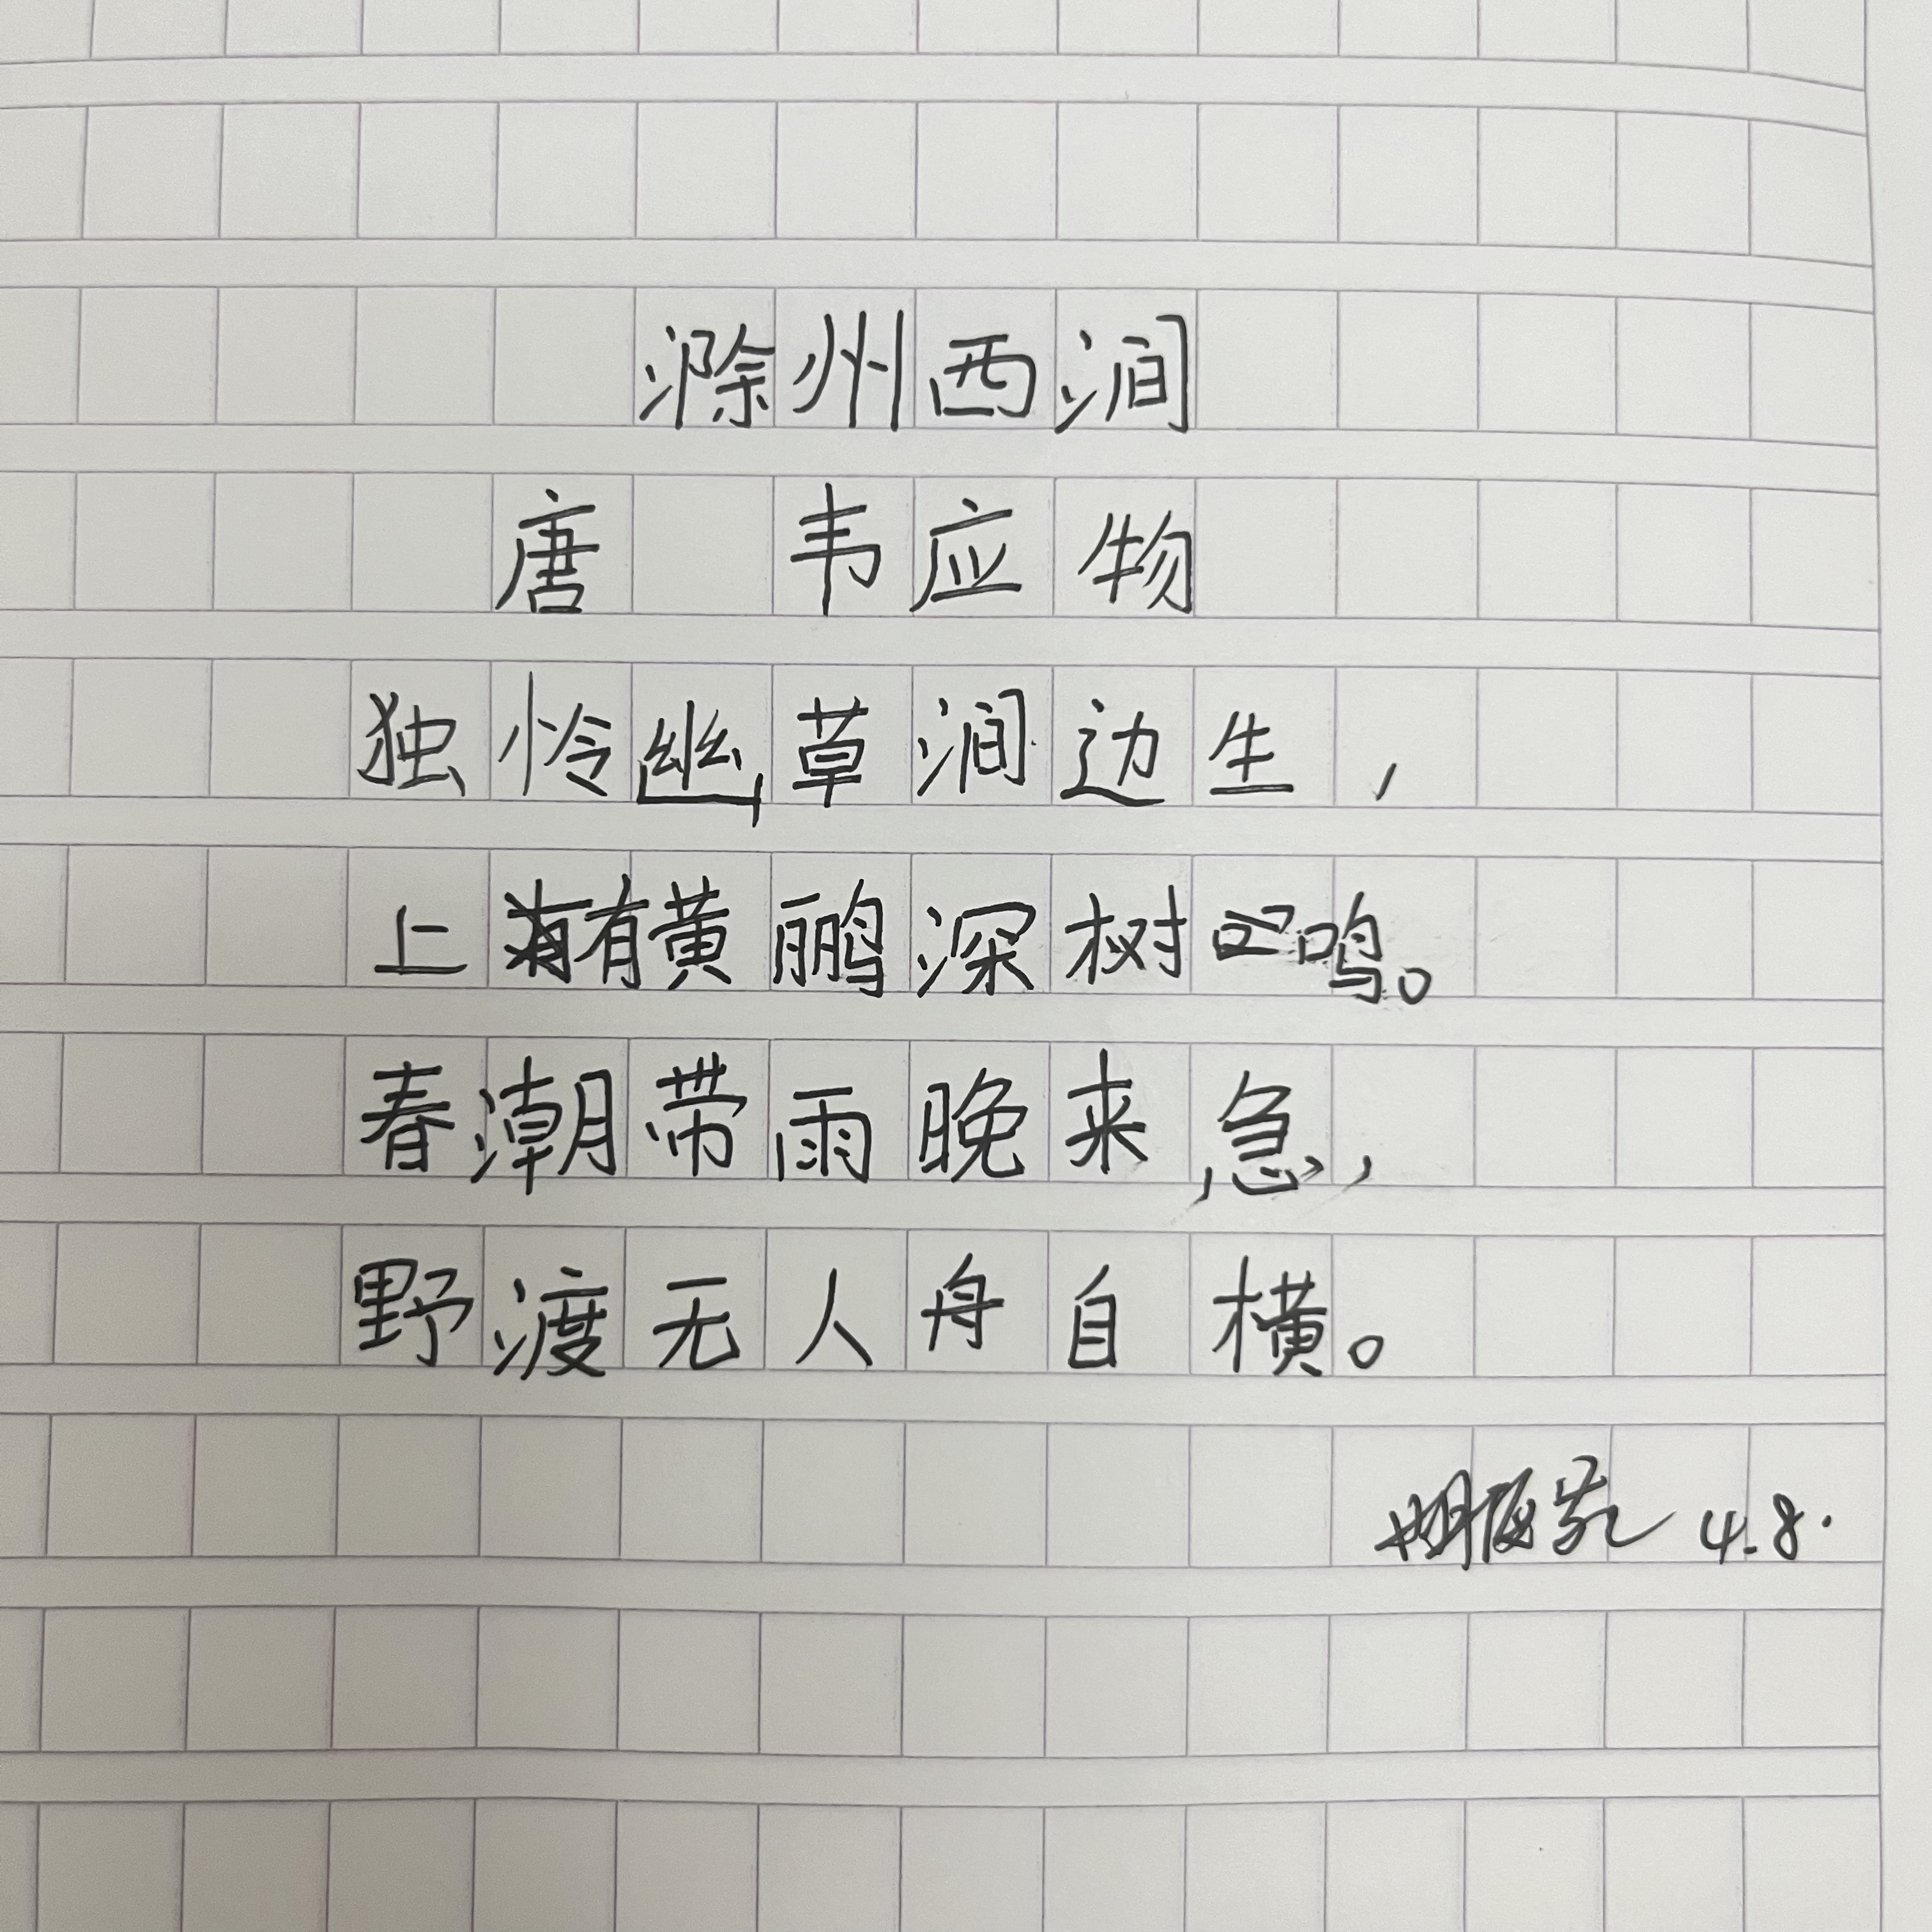 滁州西涧
唐 韦应物
独怜幽草涧边生，
上有黄鹂深树鸣。
春潮带雨晚来急，
野渡无人舟自横。
4.8.